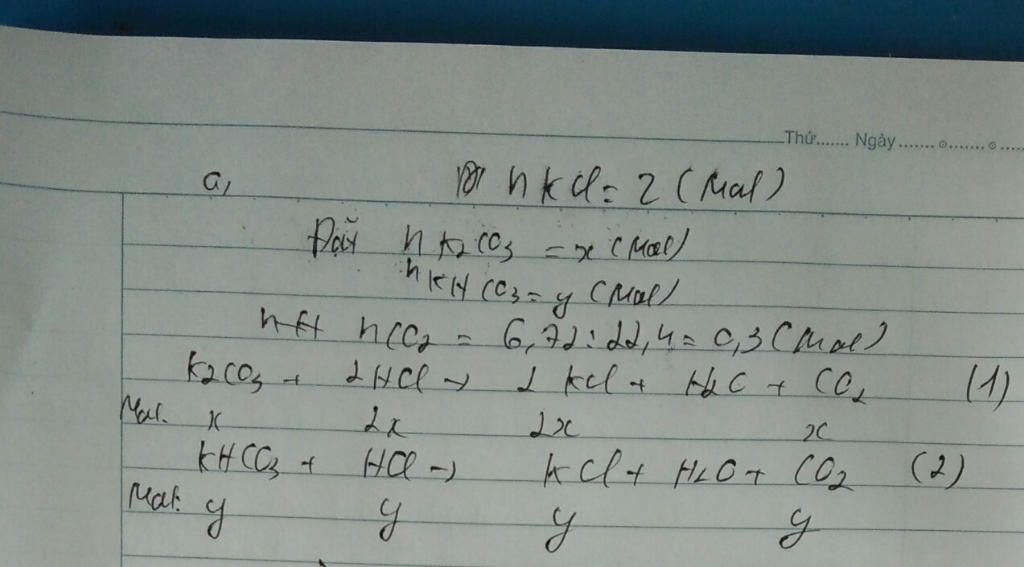 Thứ....... Ngày.......
a, n KCl = 2 (Mol)
Đặt n K2CO3 = x (Mol)
n KHCO3 = y (Mol)
n CO2 = 6,72 : 22,4 = 0,3 (Mol)
K2CO3 + 2HCl → 2 KCl + H2O + CO2 (1)
Mol: x 2x 2x x
KHCO3 + HCl → KCl + H2O + CO2 (2)
Mol: y y y y